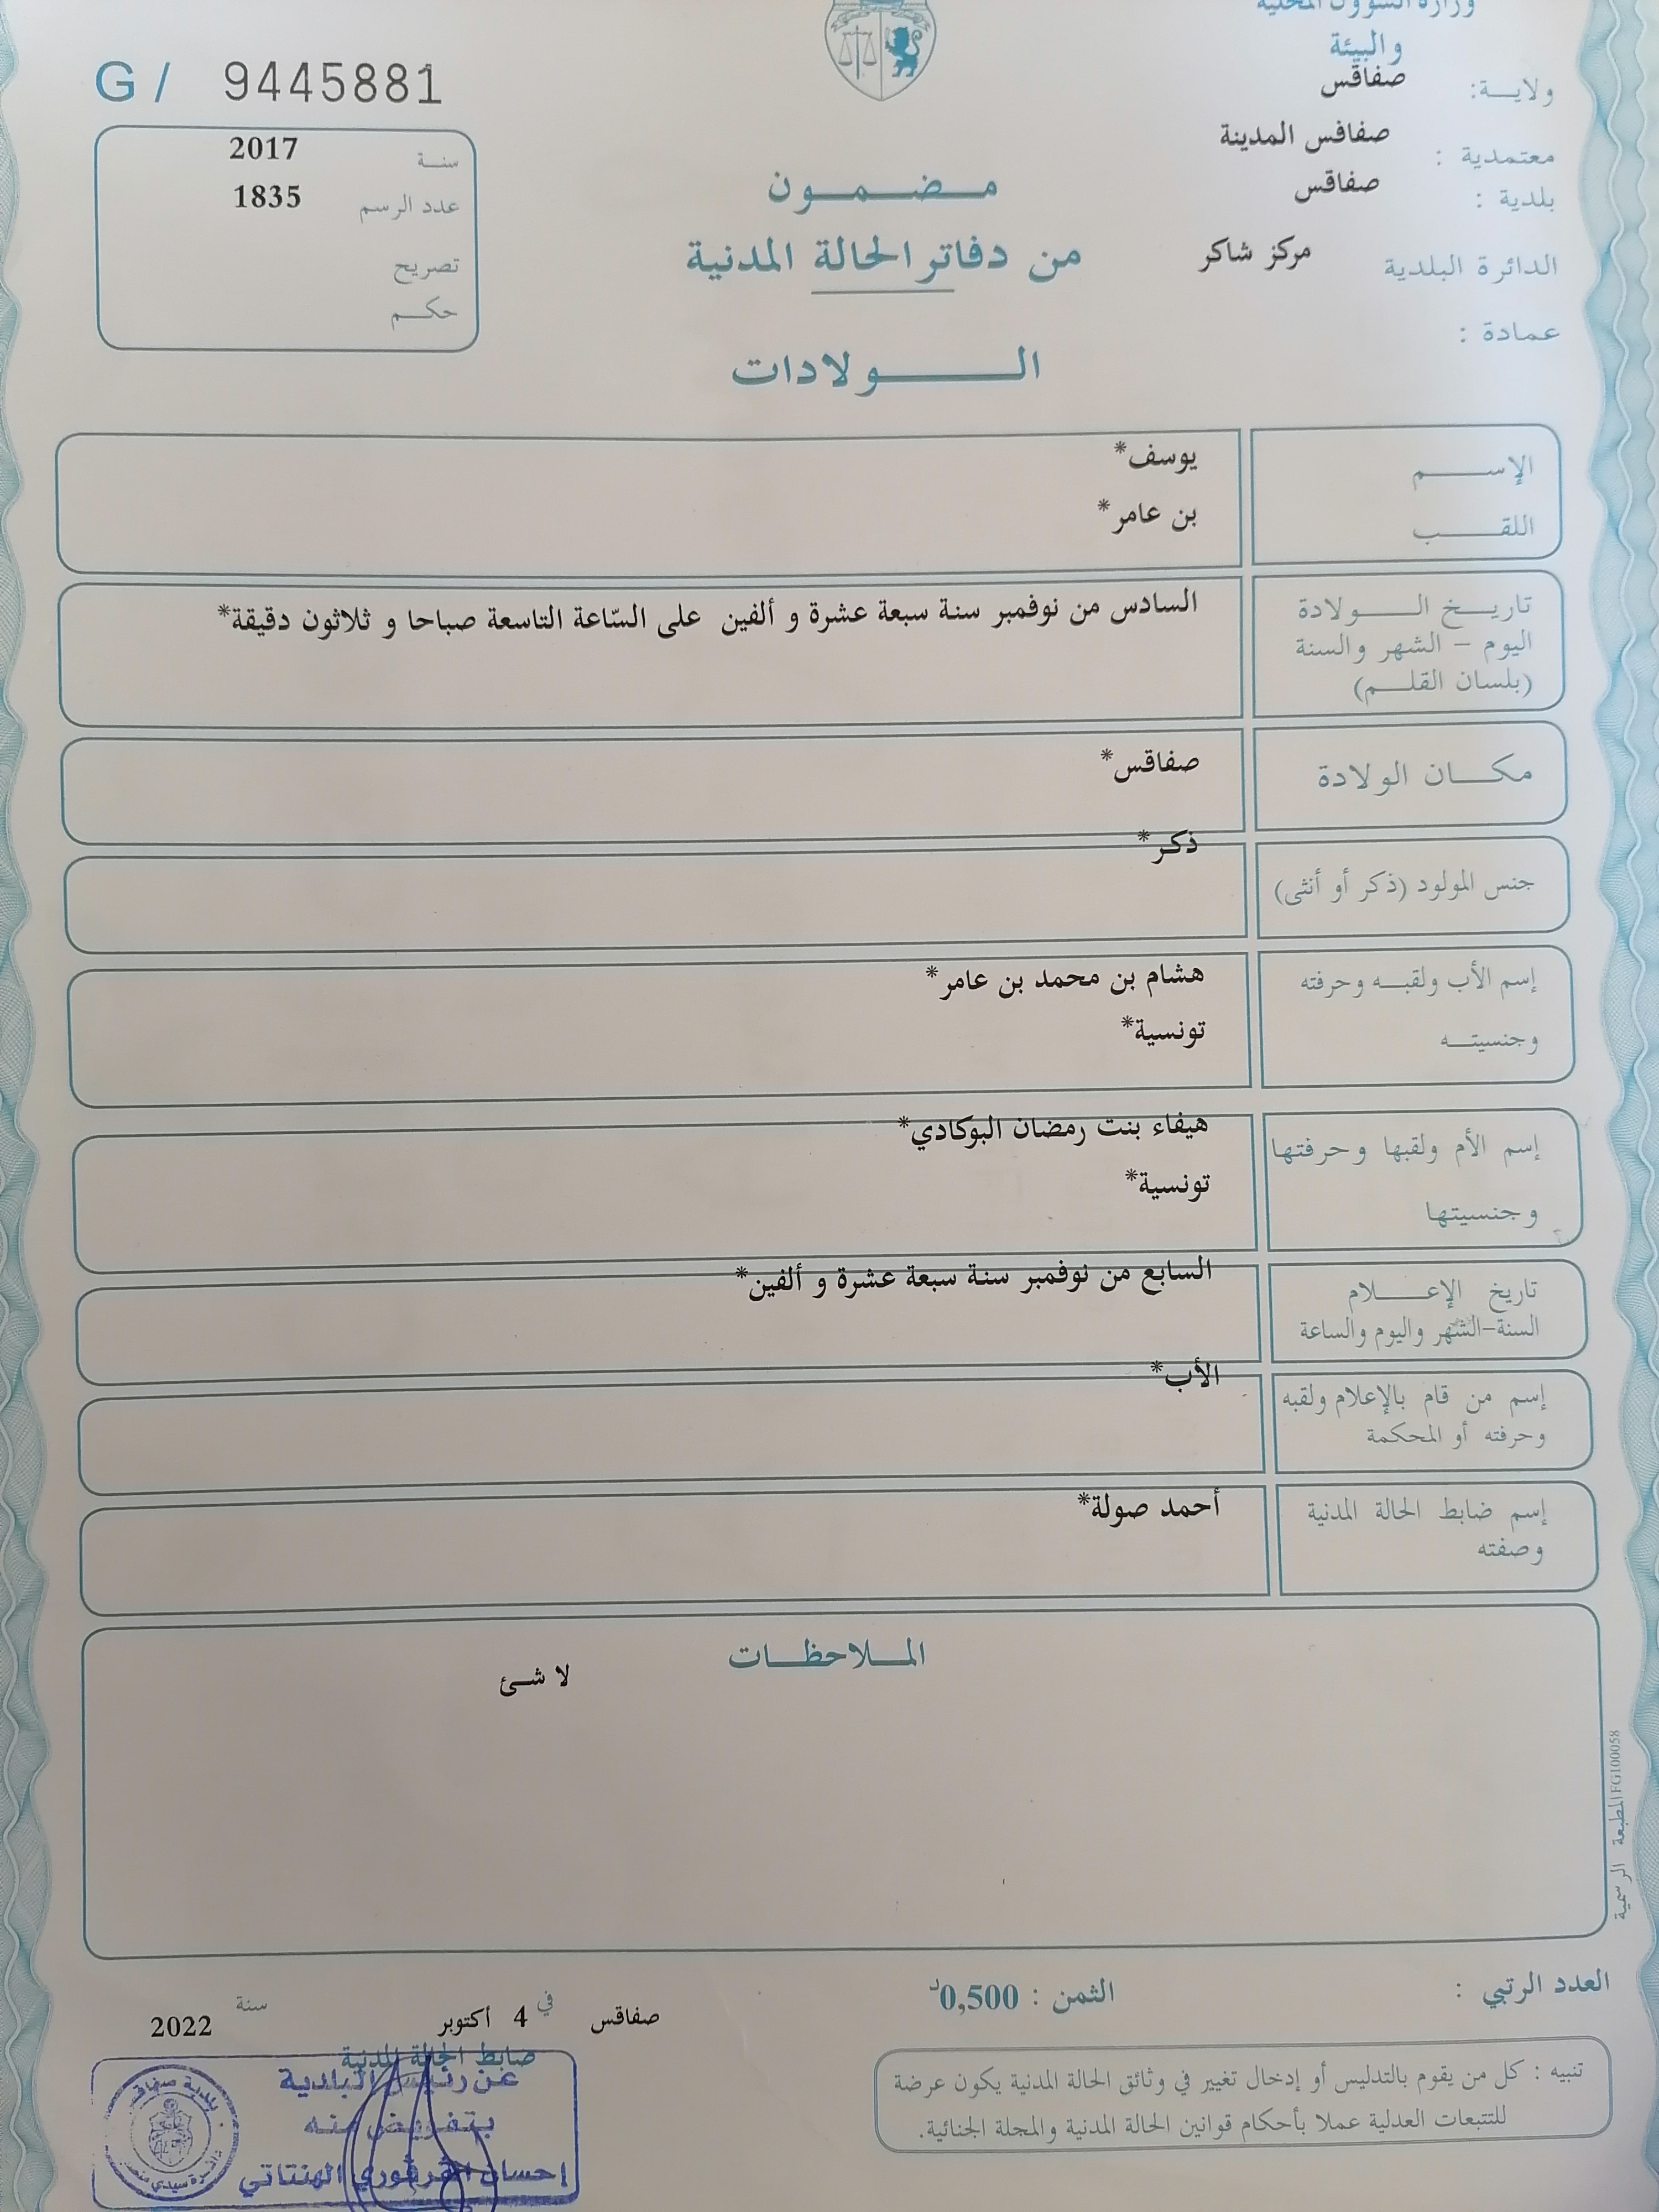 وزارة الشؤون المحلية
والبيئة
ولايـــة: صفاقس
معتمدية : صفاقس المدينة
بلدية : صفاقس
الدائرة البلدية مركز شاكر
عمادة :
G / 9445881
سنـة 2017
عدد الرسم 1835
تصريح
حكــم
مـضـمـون
من دفاتر الحالة المدنية
الـولادات
الإســـم يوسف*
اللقـــب بن عامر*
تاريـخ الـــولادة السادس من نوفمبر سنة سبعة عشرة و ألفين على السّاعة التاسعة صباحا و ثلاثون دقيقة*
اليوم – الشهر والسنة
(بلسان القلــم)
مكـــان الولادة صفاقس*
جنس المولود (ذكر أو أنثى) ذكر*
إسم الأب ولقبـه وحرفته هشام بن محمد بن عامر*
وجنسيتــه تونسية*
إسم الأم ولقبها وحرفتها هيفاء بنت رمضان البوكادي*
وجنسيتها تونسية*
تاريخ الإعـــلام السابع من نوفمبر سنة سبعة عشرة و ألفين*
السنة-الشهر واليوم والساعة
إسم من قام بالإعلام ولقبه الأب*
وحرفته أو المحكمة
إسم ضابط الحالة المدنية أحمد صولة*
وصفته
المـلاحظـات
لا شئ
المطبعة الرسمية FG100058
العدد الرتبي :
الثمن : 0,500د
صفاقس في 4 أكتوبر سنة 2022
ضابط الحالة المدنية
عن رئيس البلدية
بتفويض منه
إحسان القرقوري الهنتاتي
تنبيه : كل من يقوم بالتدليس أو إدخال تغيير في وثائق الحالة المدنية يكون عرضة
للتتبعات العدلية عملا بأحكام قوانين الحالة المدنية والمجلة الجنائية.